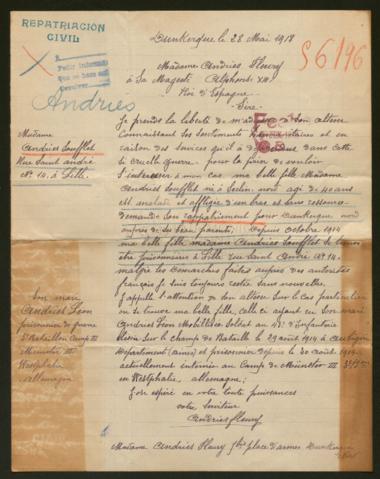 REPATRIACIÓN
CIVIL
Dunkerque le 28 Mai 1918
S 6196
Pedir informes
Que se hará así
Devolver
Madame Andries Fleury
à Sa Majesté Alphonse XIII
Roi d'Espagne
Andries
Sire
Je prends la liberté de m'adresser à Son altesse
Connaissant les Sentiments humanitaires et en
Madame
raison des services qu'il a rendus dans cette
Andries Soufflet
si cruelle guerre, pour le prier de vouloir
Rue Saint André
s'intéresser à mon cas ma belle fille Madame
N° 14. à Lille
Andries Soufflet née à Seclin, nord, agé de 40 ans
est malade et affligée d'un bras et sans ressource
demande Son rappatriement pour Dunkerque nord
auprès de ses beau parents. Depuis Octobre 1914
ma belle fille madame Andries Soufflet se trouve
être prisonnière à Lille rue Saint André N° 14.
malgré les demarches faites auprès des autorités
français je suis toujours restée sans nouvelles,
Son mari
J'appelle l'attention de Son altesse Sur le Cas particulier
Andries Léon
ou se trouve ma belle fille, celle ci ayant eu Son mari
prisonnier de guerre
Andries Léon Mobilisé Soldat au d'infanterie
Bataillon Camp III
Sur le champ de Bataille le 29 aout 1914 à
Münster III
Departement (aisne) et prisonnier depuis le 30 aout 1914
Westphalie
actuellement interné au Camp de Münster III
allemagne
en Westphalie, allemagne;
J'ose espéré en votre toute puissances
votre Serviteur
Andries Fleury
Madame Andries Fleury place d'armes Dunkerque
Nord